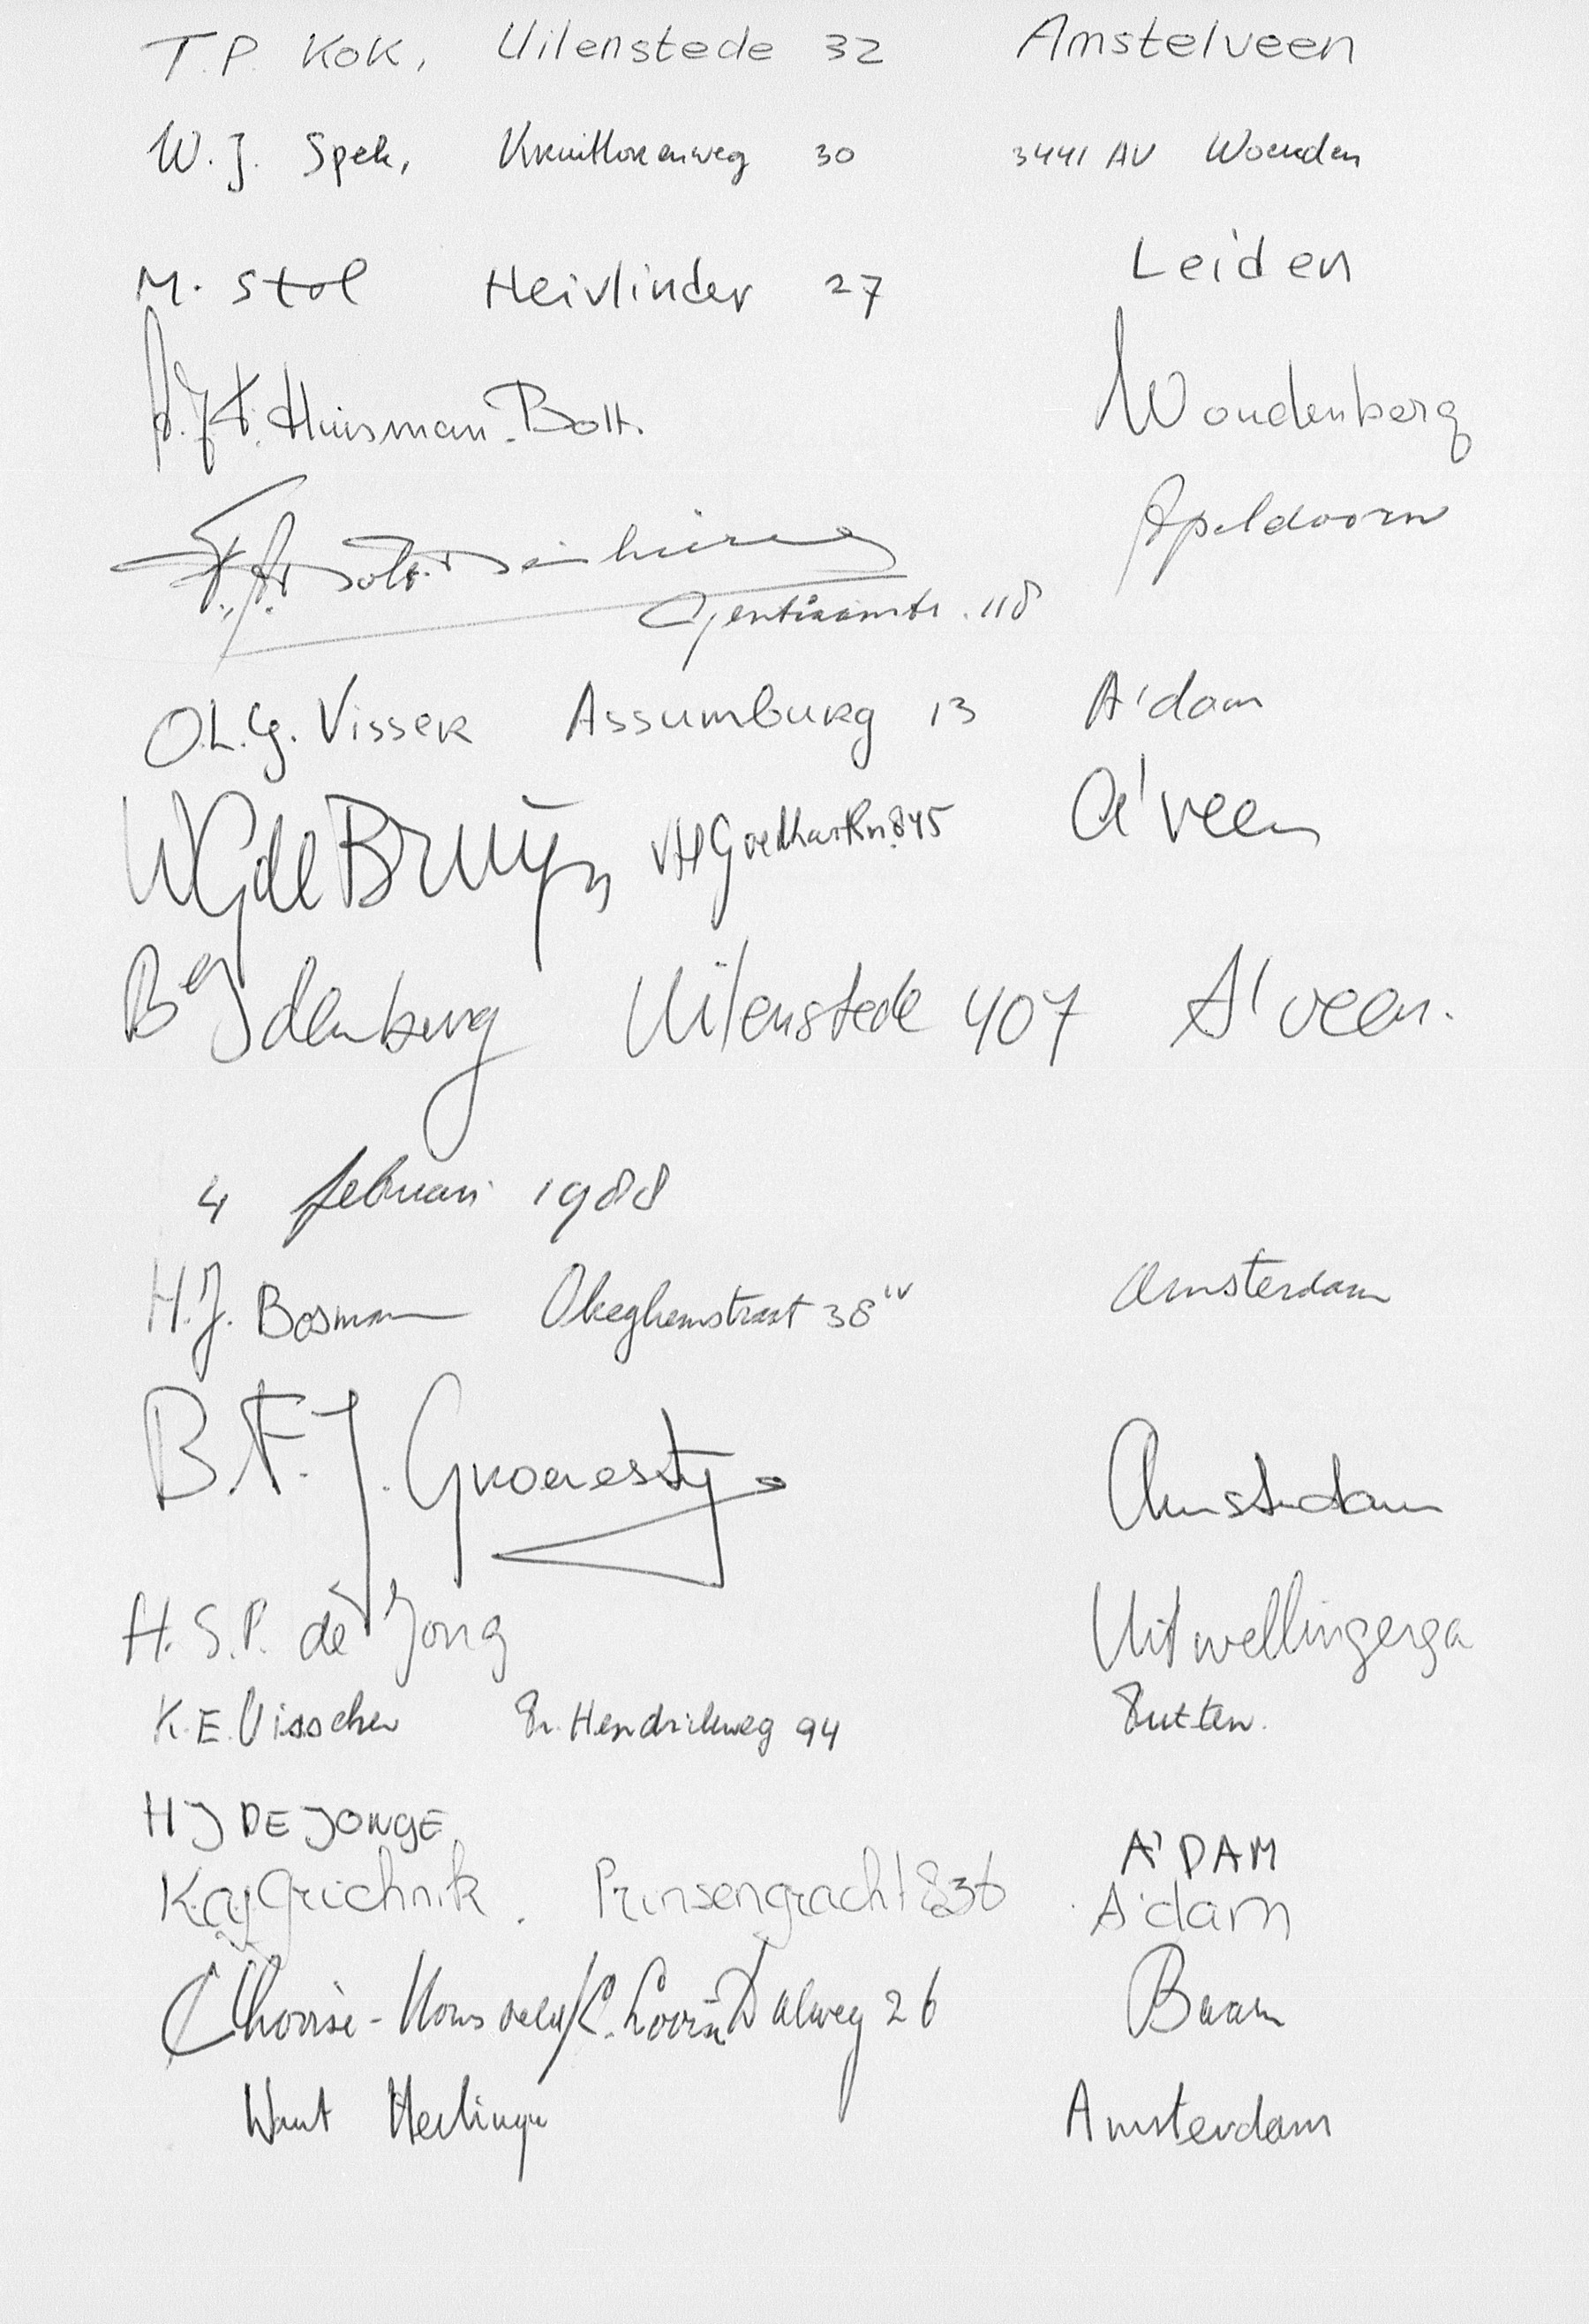 T.P. Kok, Uilenstede 32 Amstelveen
W.J. Spek, Kruittorenweg 30 3441 AV Woerden
M. Stol Heivlinder 27 Leiden
Huisman-Bolt. Woudenberg
Apeldoorn
Gentiaanstr. 118
O.L.G. Visser Assumburg 13 A'dam
WG de Bruijn VH Goedhartln. 845 A'veen
B Idenburg Uilenstede 407 A'veen.
4 februari 1988
H.J. Bosman Okeghemstraat 38 IV Amsterdam
B.F.J. Amsterdam
H.S.P. de Jong Uitwellingerga
K.E. Visscher Pr. Hendrikweg 94 Putten.
H J DE JONGE A'DAM
Grichnik. Prinsengracht 836 A'dam
Dalweg 26 Baarn
Amsterdam